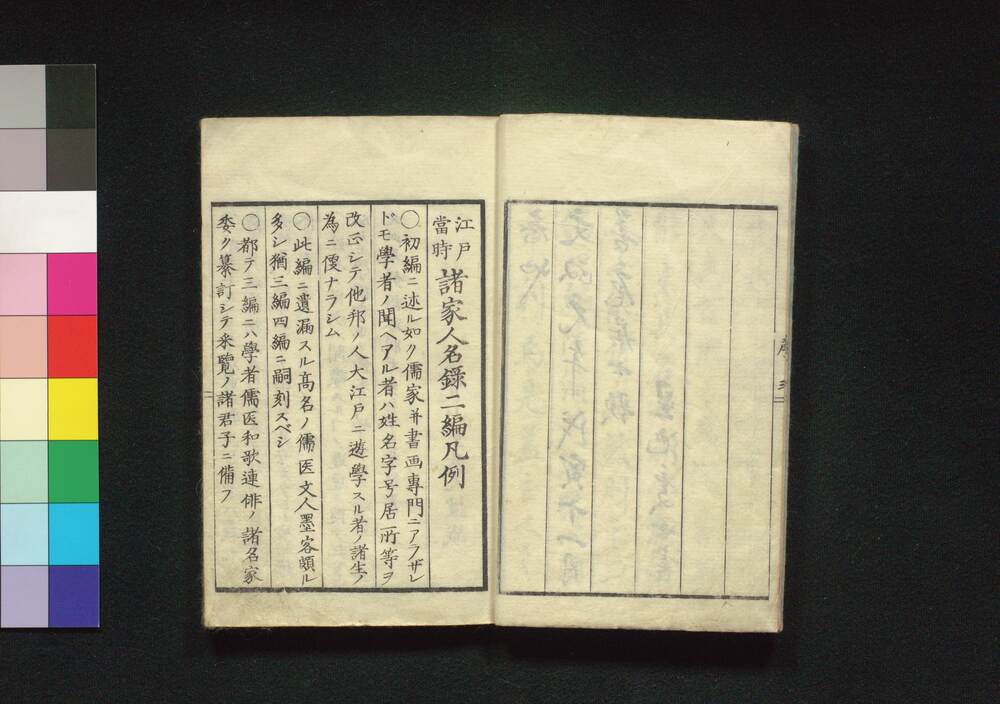 江戸
當時
諸家人名錄二編凡例
〇初編ニ述ル如ク儒家并書画專門ニアラザレ
ドモ學者ノ聞ヘアル者ハ姓名字号居所等ヲ
改正シテ他邦ノ人大江戸ニ遊學スル者ノ諸生ノ
為ニ便ナラシム
〇此編ニ遺漏スル高名ノ儒医文人墨客頗ル
多シ猶三編四編ニ嗣刻スベシ
〇都テ三編ニハ學者儒医和歌連俳ノ諸名家
委ク纂訂シテ来覽ノ諸君子ニ備フ